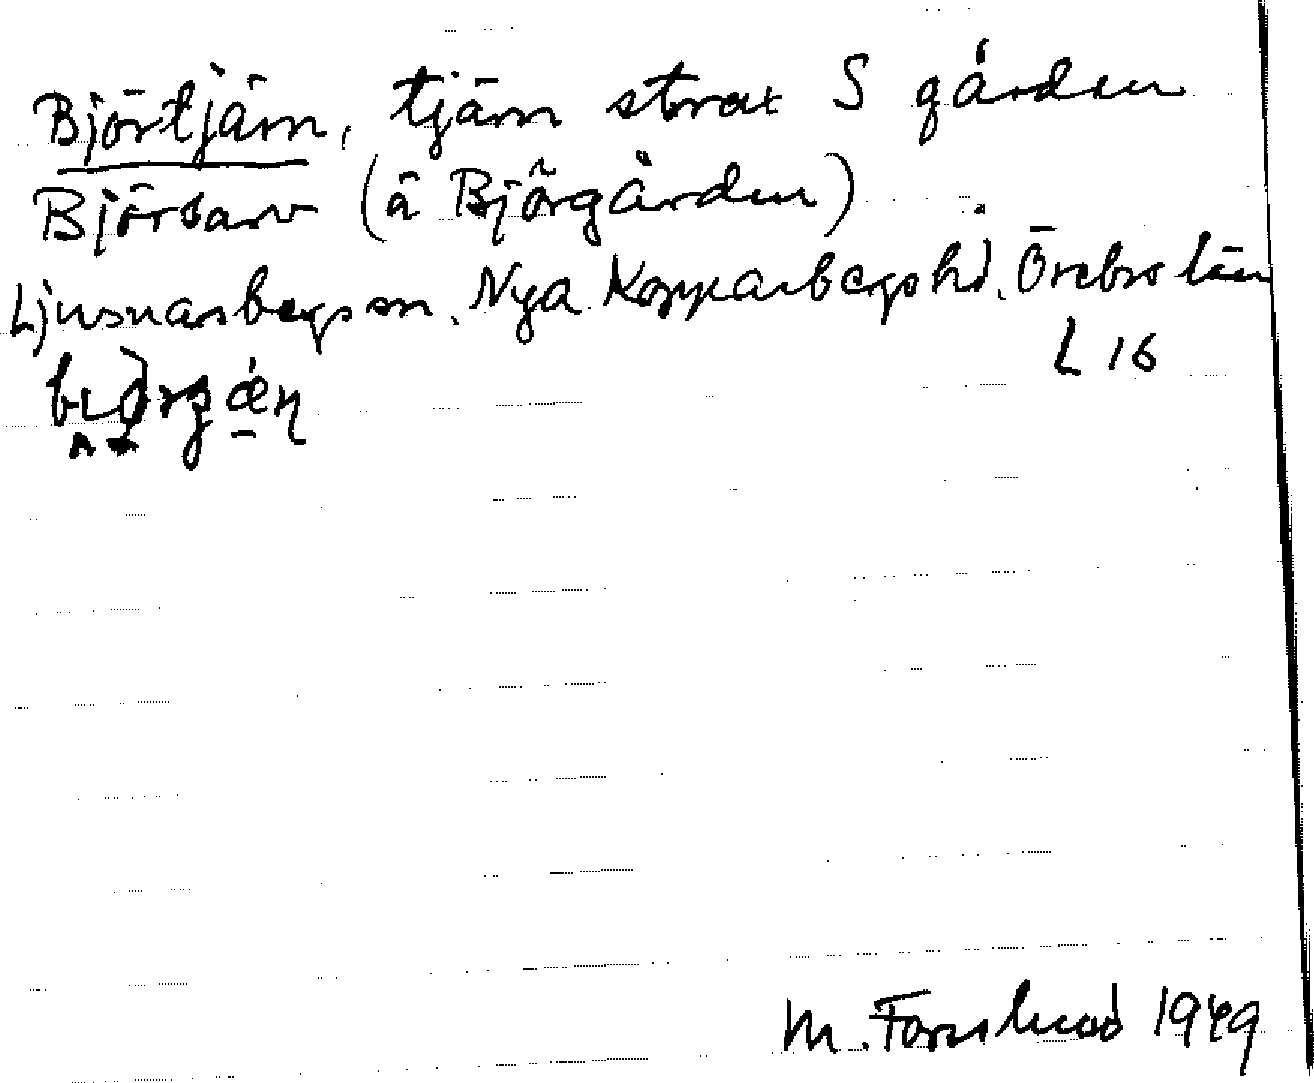 Björtjärn, tjärn strax S gården
Björsarv (å Björgården)
Ljusnarsbergs sn. Nya Kopparbergs hd. Örebro län
L 16
M. Forslund 1949